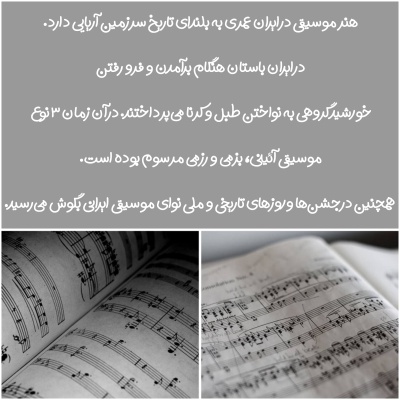 هنر موسیقی در ایران عمری به بلندای تاریخ سرزمین آریایی دارد.
در ایران باستان هنگام برآمدن و فرو رفتن
خورشید گروهی به نواختن طبل و کرنا می‌پرداختند. در آن زمان ۳ نوع
موسیقی آئینی، بزمی و رزمی مرسوم بوده است.
همچنین در جشن‌ها و روزهای تاریخی و ملی نوای موسیقی ایرانی بگوش می‌رسید.